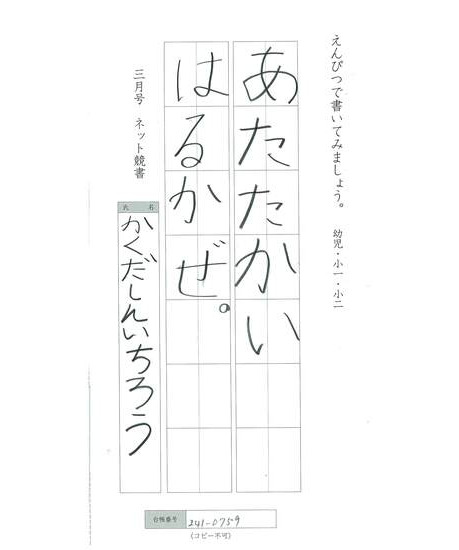 えんぴつで書いてみましょう。 幼児・小一・小二
あたたかい
はるかぜ。
三月号 ネット競書
氏名
かくだしんいちろう
台帳番号 241-0759
(コピー不可)